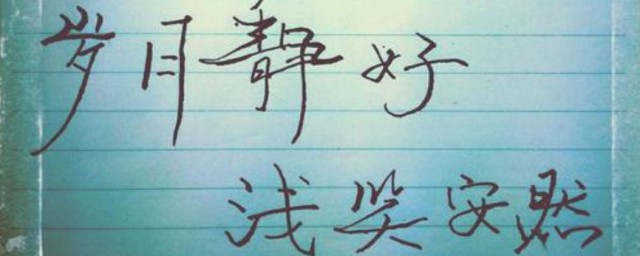 岁月静好
浅笑安然